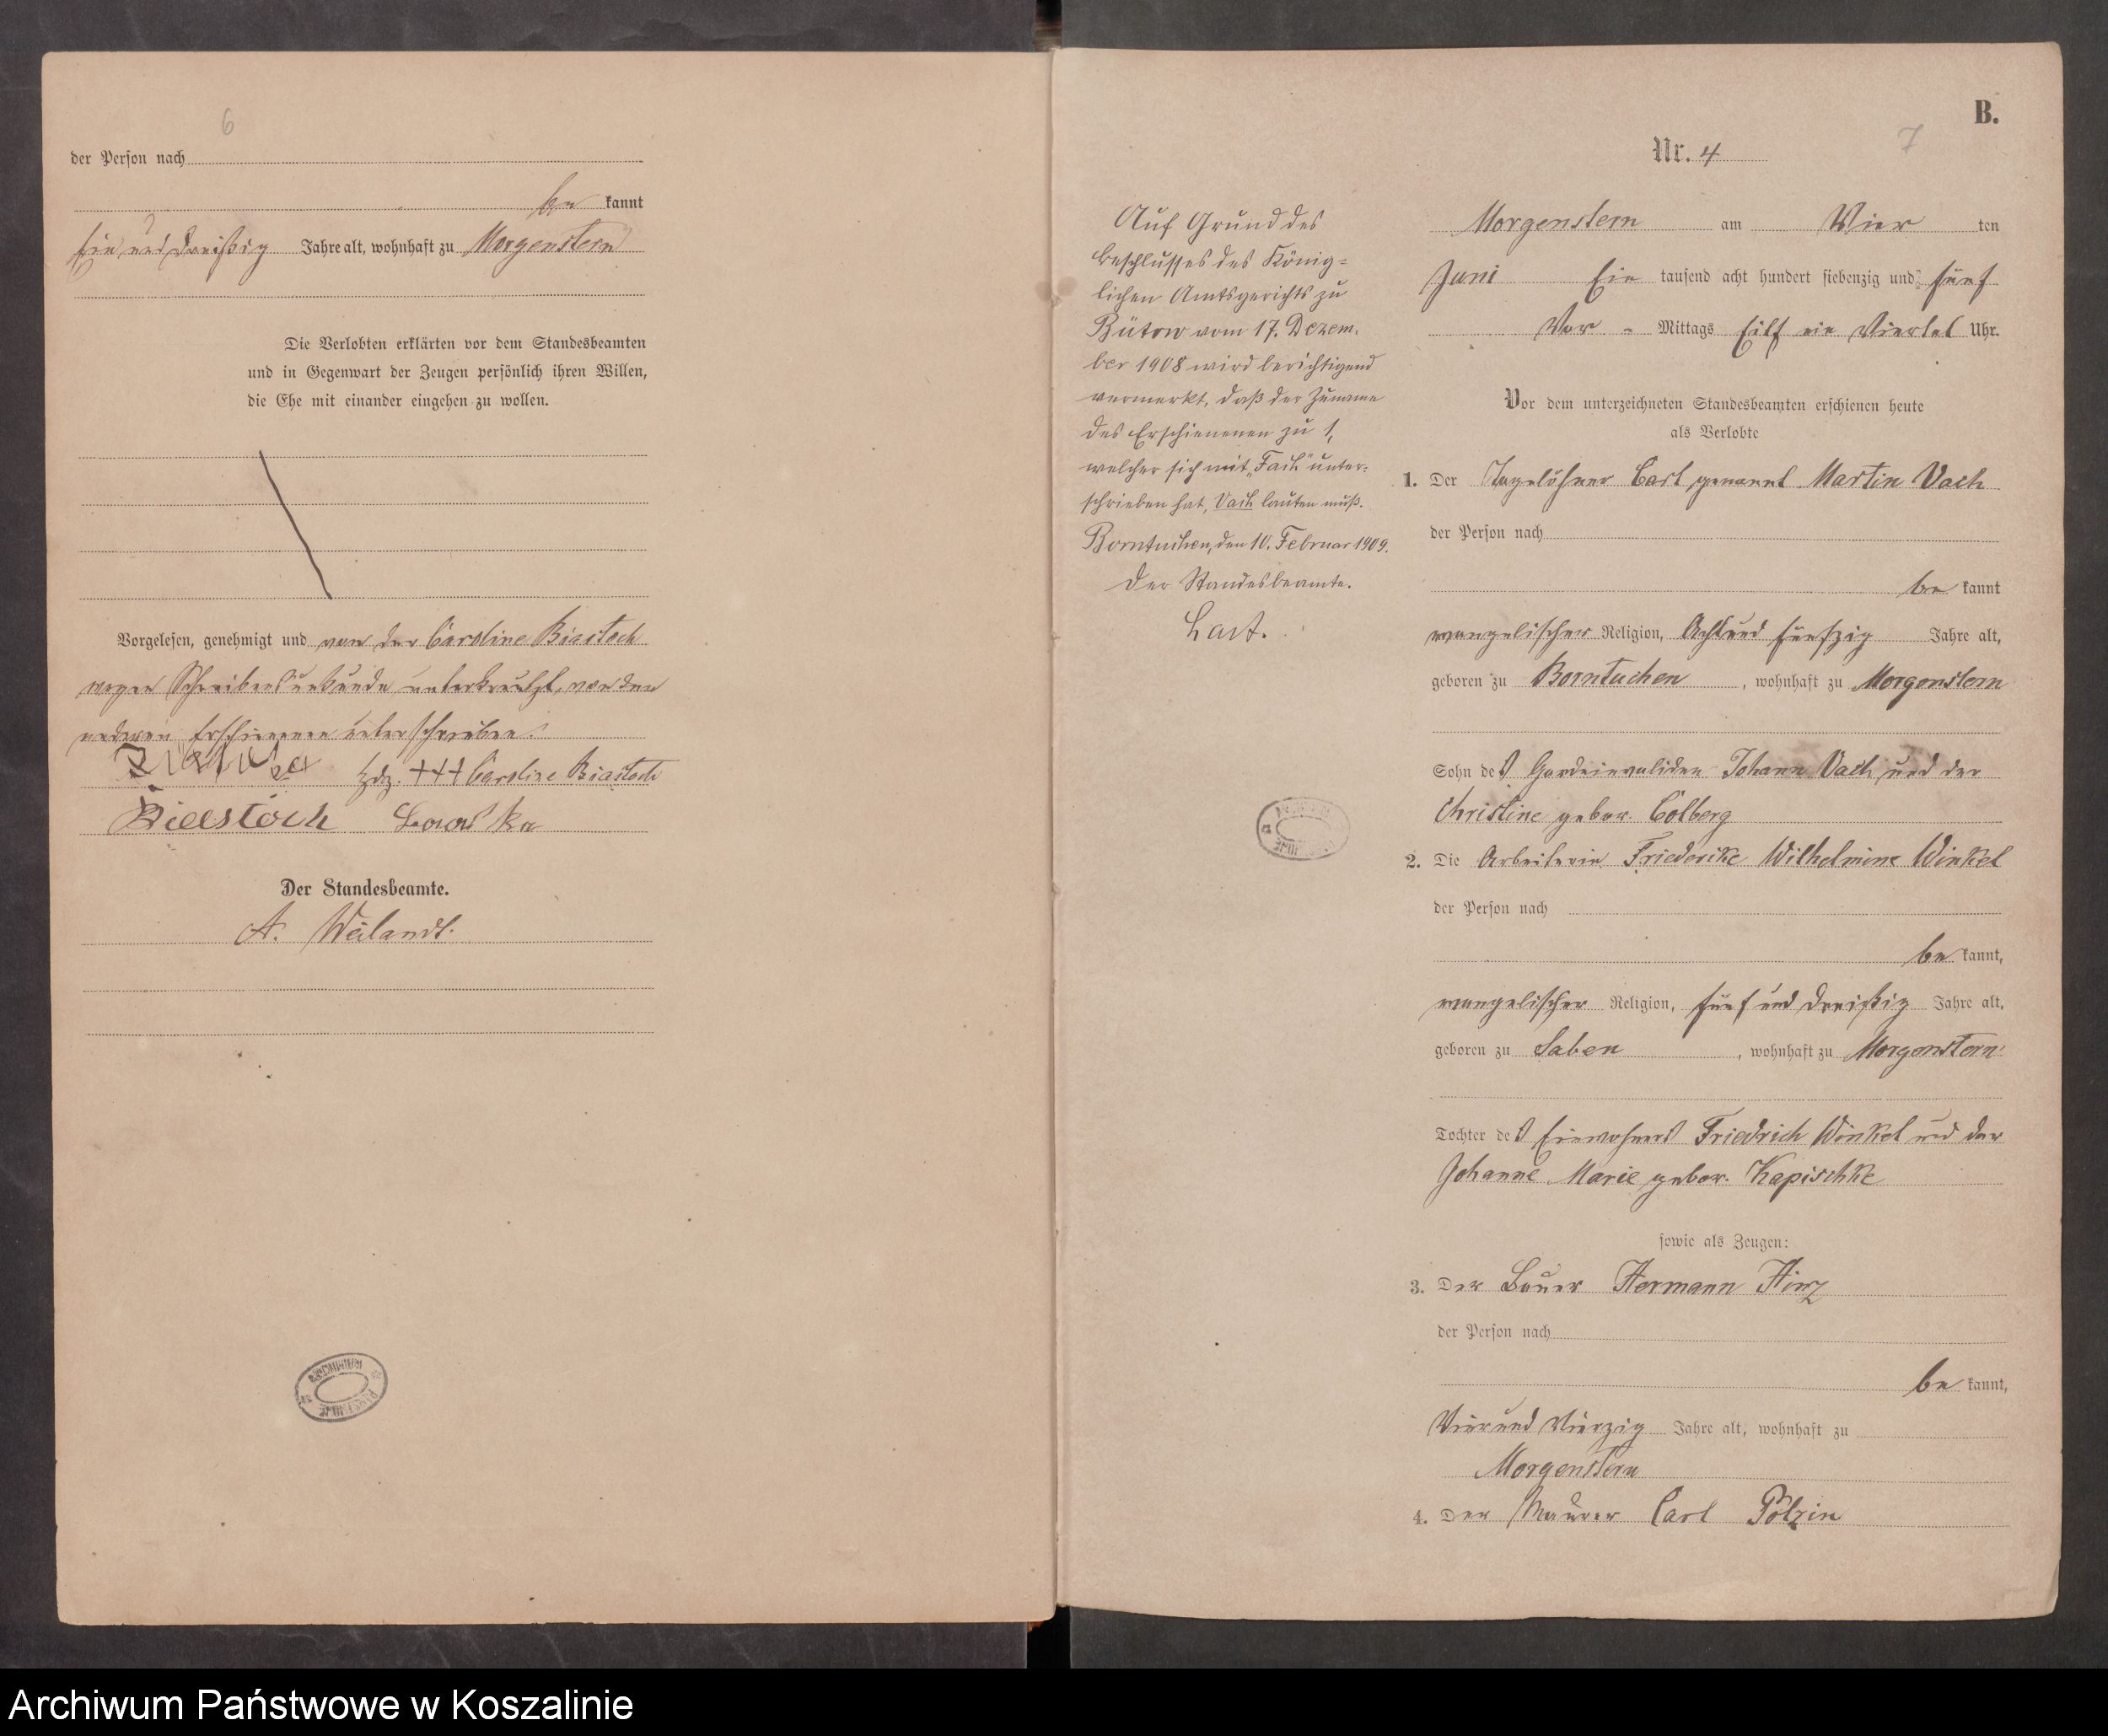 6
der Person nach
be kannt
Ein und dreißig Jahre alt, wohnhaft zu Morgenstern
Die Verlobten erklärten vor dem Standesbeamten
und in Gegenwart der Zeugen persönlich ihren Willen,
die Ehe mit einander eingehen zu wollen.
Vorgelesen, genehmigt und von der Caroline Biastoch
wegen Schreibensunkunde unterkreuzt, von den
anderen Erschienenen unterschrieben.
hdz. +++ Caroline Biastoch
Biastoch
Der Standesbeamte.
A. Weilandt.
B.
7
Nr. 4
Auf Grund des
Beschlusses des König-
lichen Amtsgerichts zu
Bütow vom 17. Dezem-
ber 1908 wird berichtigend
vermerkt, daß der Zuname
des Erschienenen zu 1,
welcher sich mit „Fach" unter-
schrieben hat, Vach lauten muß.
Borntuchen, den 10. Februar 1909.
Der Standesbeamte.
Morgenstern am Vier ten
Juni Ein tausend acht hundert siebenzig und fünf
Vor - Mittags Eilf ein Viertel Uhr.
Vor dem unterzeichneten Standesbeamten erschienen heute
als Verlobte
1. Der Tagelöhner Carl genannt Martin Vach
der Person nach
be kannt
evangelischer Religion, Acht und fünfzig Jahre alt,
geboren zu Borntuchen, wohnhaft zu Morgenstern
Sohn des Gardeinvaliden Johann Vach und der
Christine gebor. Colberg
2. Die Arbeiterin Friederike Wilhelmine Winkel
der Person nach
be kannt,
evangelischer Religion, fünf und dreißig Jahre alt,
geboren zu Saben, wohnhaft zu Morgenstern
Tochter des Einwohners Friedrich Winkel und der
Johanne Marie gebor. Kapischke
sowie als Zeugen:
3. Der Bauer Hermann Hinz
der Person nach
be kannt,
Vier und Vierzig Jahre alt, wohnhaft zu
Morgenstern
4. Der Maurer Carl Polzin
Archiwum Państwowe w Koszalinie